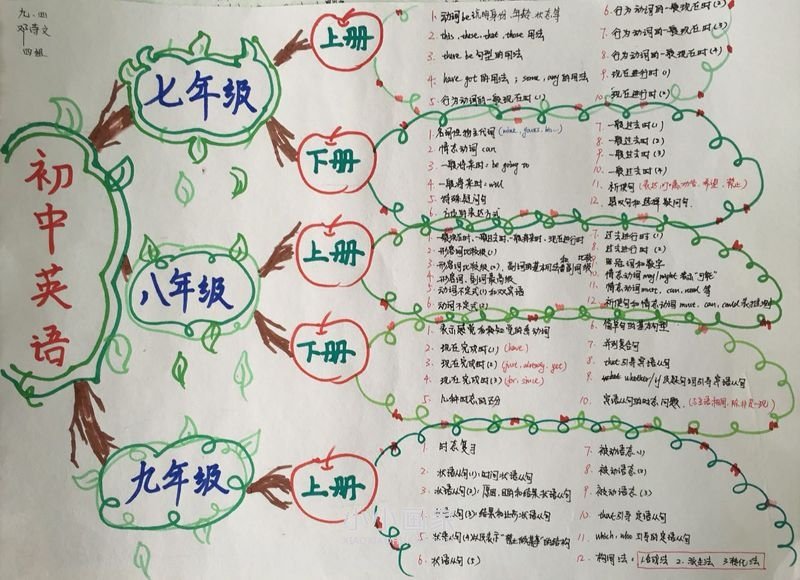 九.四
邓诗文
四组
初中英语
七年级
上册
1. 动词be说明身份、年龄、状态等
2. this, these, that, those 用法
3. there be 句型的用法
4. have got 的用法；some, any 的用法
5. 行为动词的一般现在时(1)
6. 行为动词的一般现在时(2)
7. 行为动词的一般现在时(3)
8. 行为动词的一般现在时(4)
9. 现在进行时(1)
10. 现在进行时(2)
下册
1. 名词性物主代词(mine, yours, his...)
2. 情态动词 can
3. 一般将来时: be going to
4. 一般将来时: will
5. 特殊疑问句
6. 方位的表达方式
7. 一般过去时(1)
8. 一般过去时(2)
9. 一般过去时(3)
10. 一般过去时(4)
11. 祈使句
12. 感叹句和选择疑问句
八年级
上册
1. 一般现在时、一般过去时、一般将来时、现在进行时
2. 形容词比较级(1)
3. 形容词比较级(2)、副词的基本用法和副词比较级
4. 形容词、副词最高级
5. 动词不定式(1)和双宾语
6. 动词不定式(2)
7. 过去进行时(1)
8. 过去进行时(2)
9. 数字
10. 情态动词 may/might 表示"可能"
11. 情态动词 must, can, need 等
12. 祈使句和情态动词 must, can, could
下册
1. 表示感觉和知觉的系动词
2. 现在完成时(1) (have)
3. 现在完成时(2) (just, already, yet)
4. 现在完成时(3) (for, since)
5. 几种时态的区分
6. 简单句的基本句型
7. 并列复合句
8. that引导宾语从句
9. whether/if及疑问词引导宾语从句
10. 宾语从句的时态问题.
九年级
上册
1. 时态复习
2. 状语从句(1): 时间状语从句
3. 状语从句(2): 原因、目的和结果状语从句
4. 状语从句(3): 结果和让步状语从句
5. 状语从句(4)以及表示
6. 状语从句(5)
7. 被动语态(1)
8. 被动语态(2)
9. 被动语态(3)
10. that引导定语从句
11. which, who引导的定语从句
12. 构词法: 1.合成法 2.派生法 3.转化法